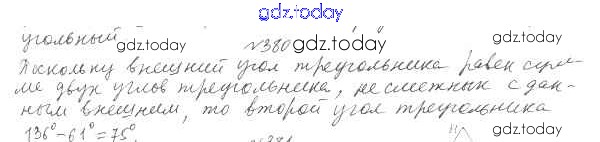 gdz.today
угольный gdz.today
№380 gdz.today
Поскольку внешний угол треугольника равен сум-
ме двух углов треугольника, не смежных с дан-
ным внешним, то второй угол треугольника
136°-61°=75°. gdz.today
gdz.today